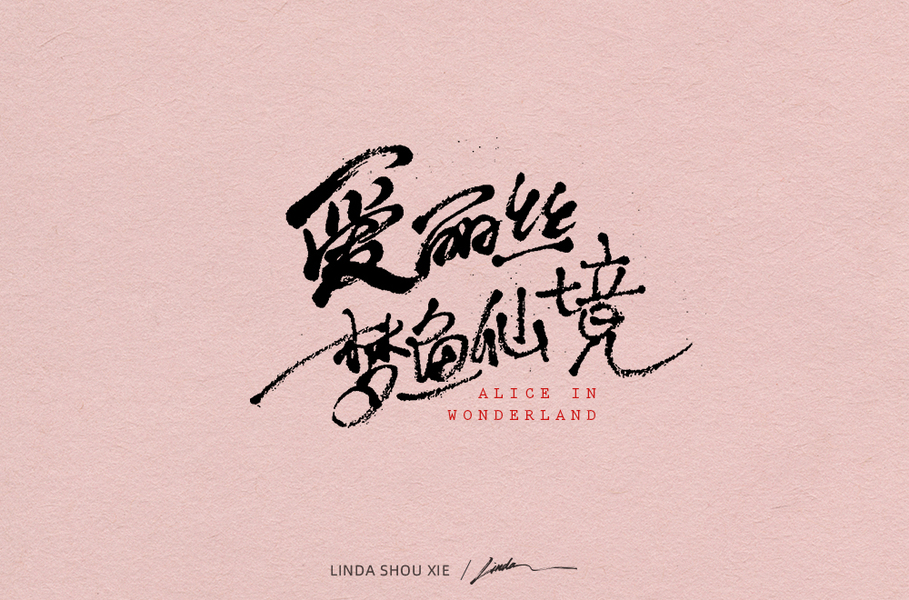 爱丽丝
梦鱼仙境
ALICE IN
WONDERLAND
LINDA SHOU XIE / Linda